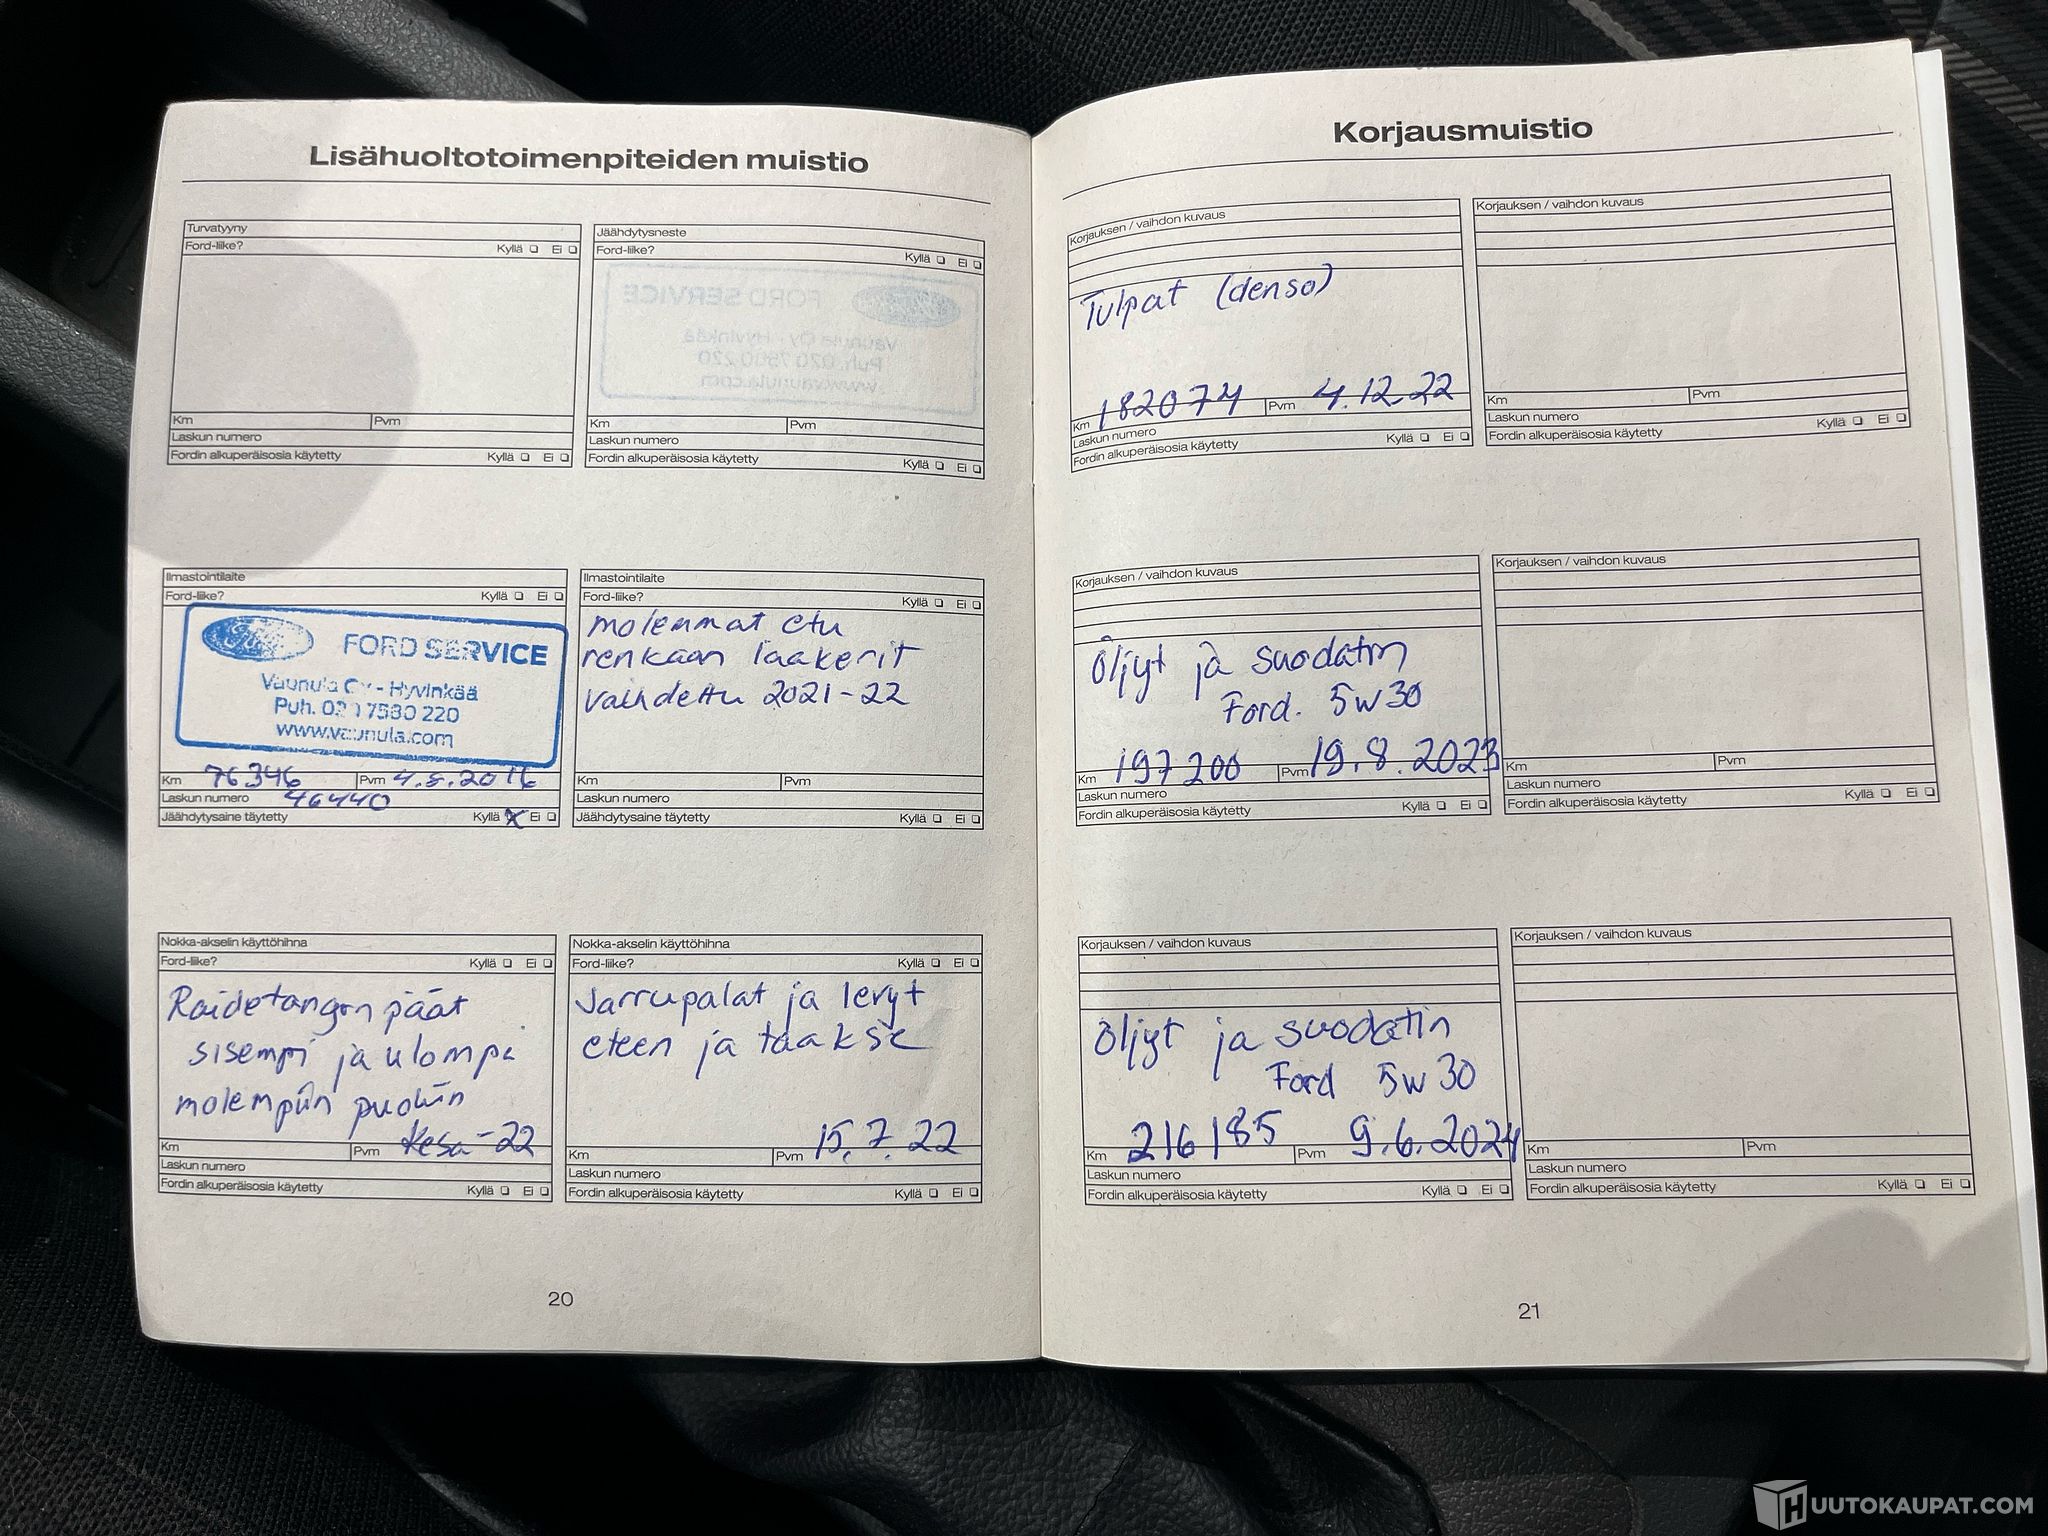 Lisähuoltotoimenpiteiden muistio
Turvatyyny
Ford-liike? Kyllä Ei
Km Pvm
Laskun numero
Fordin alkuperäisosia käytetty Kyllä Ei
Jäähdytysneste
Ford-liike? Kyllä Ei
FORD SERVICE
Vaunula Oy - Hyvinkää
Puh. 020 7580 220
www.vaunula.com
Km Pvm
Laskun numero
Fordin alkuperäisosia käytetty Kyllä Ei
Ilmastointilaite
Ford-liike? Kyllä Ei
Ford
FORD SERVICE
Vaunula Oy - Hyvinkää
Puh. 020 7580 220
www.vaunula.com
Km 76346 Pvm 4.5.2016
Laskun numero 46440
Jäähdytysaine täytetty Kyllä x Ei
Ilmastointilaite
Ford-liike? Kyllä Ei
molemmat etu
renkaan laakerit
vaihdettu 2021-22
Km Pvm
Laskun numero
Jäähdytysaine täytetty Kyllä Ei
Nokka-akselin käyttöhihna
Ford-liike? Kyllä Ei
Raidetangon päät
sisempi ja ulompi
molempiin puoliin
Km Pvm Kesä-22
Laskun numero
Fordin alkuperäisosia käytetty Kyllä Ei
Nokka-akselin käyttöhihna
Ford-liike? Kyllä Ei
Jarrupalat ja levyt
eteen ja taakse
Km Pvm 15.7.22
Laskun numero
Fordin alkuperäisosia käytetty Kyllä Ei
20
Korjausmuistio
Korjauksen / vaihdon kuvaus
Tulpat (denso)
Km 182074 Pvm 4.12.22
Laskun numero
Fordin alkuperäisosia käytetty Kyllä Ei
Korjauksen / vaihdon kuvaus
Km Pvm
Laskun numero
Fordin alkuperäisosia käytetty Kyllä Ei
Korjauksen / vaihdon kuvaus
Öljyt ja suodatin
Ford. 5w30
Km 197200 Pvm 19.8.2023
Laskun numero
Fordin alkuperäisosia käytetty Kyllä Ei
Korjauksen / vaihdon kuvaus
Km Pvm
Laskun numero
Fordin alkuperäisosia käytetty Kyllä Ei
Korjauksen / vaihdon kuvaus
Öljyt ja suodatin
Ford 5w30
Km 216185 Pvm 9.6.2024
Laskun numero
Fordin alkuperäisosia käytetty Kyllä Ei
Korjauksen / vaihdon kuvaus
Km Pvm
Laskun numero
Fordin alkuperäisosia käytetty Kyllä Ei
21
HUUTOKAUPAT.COM